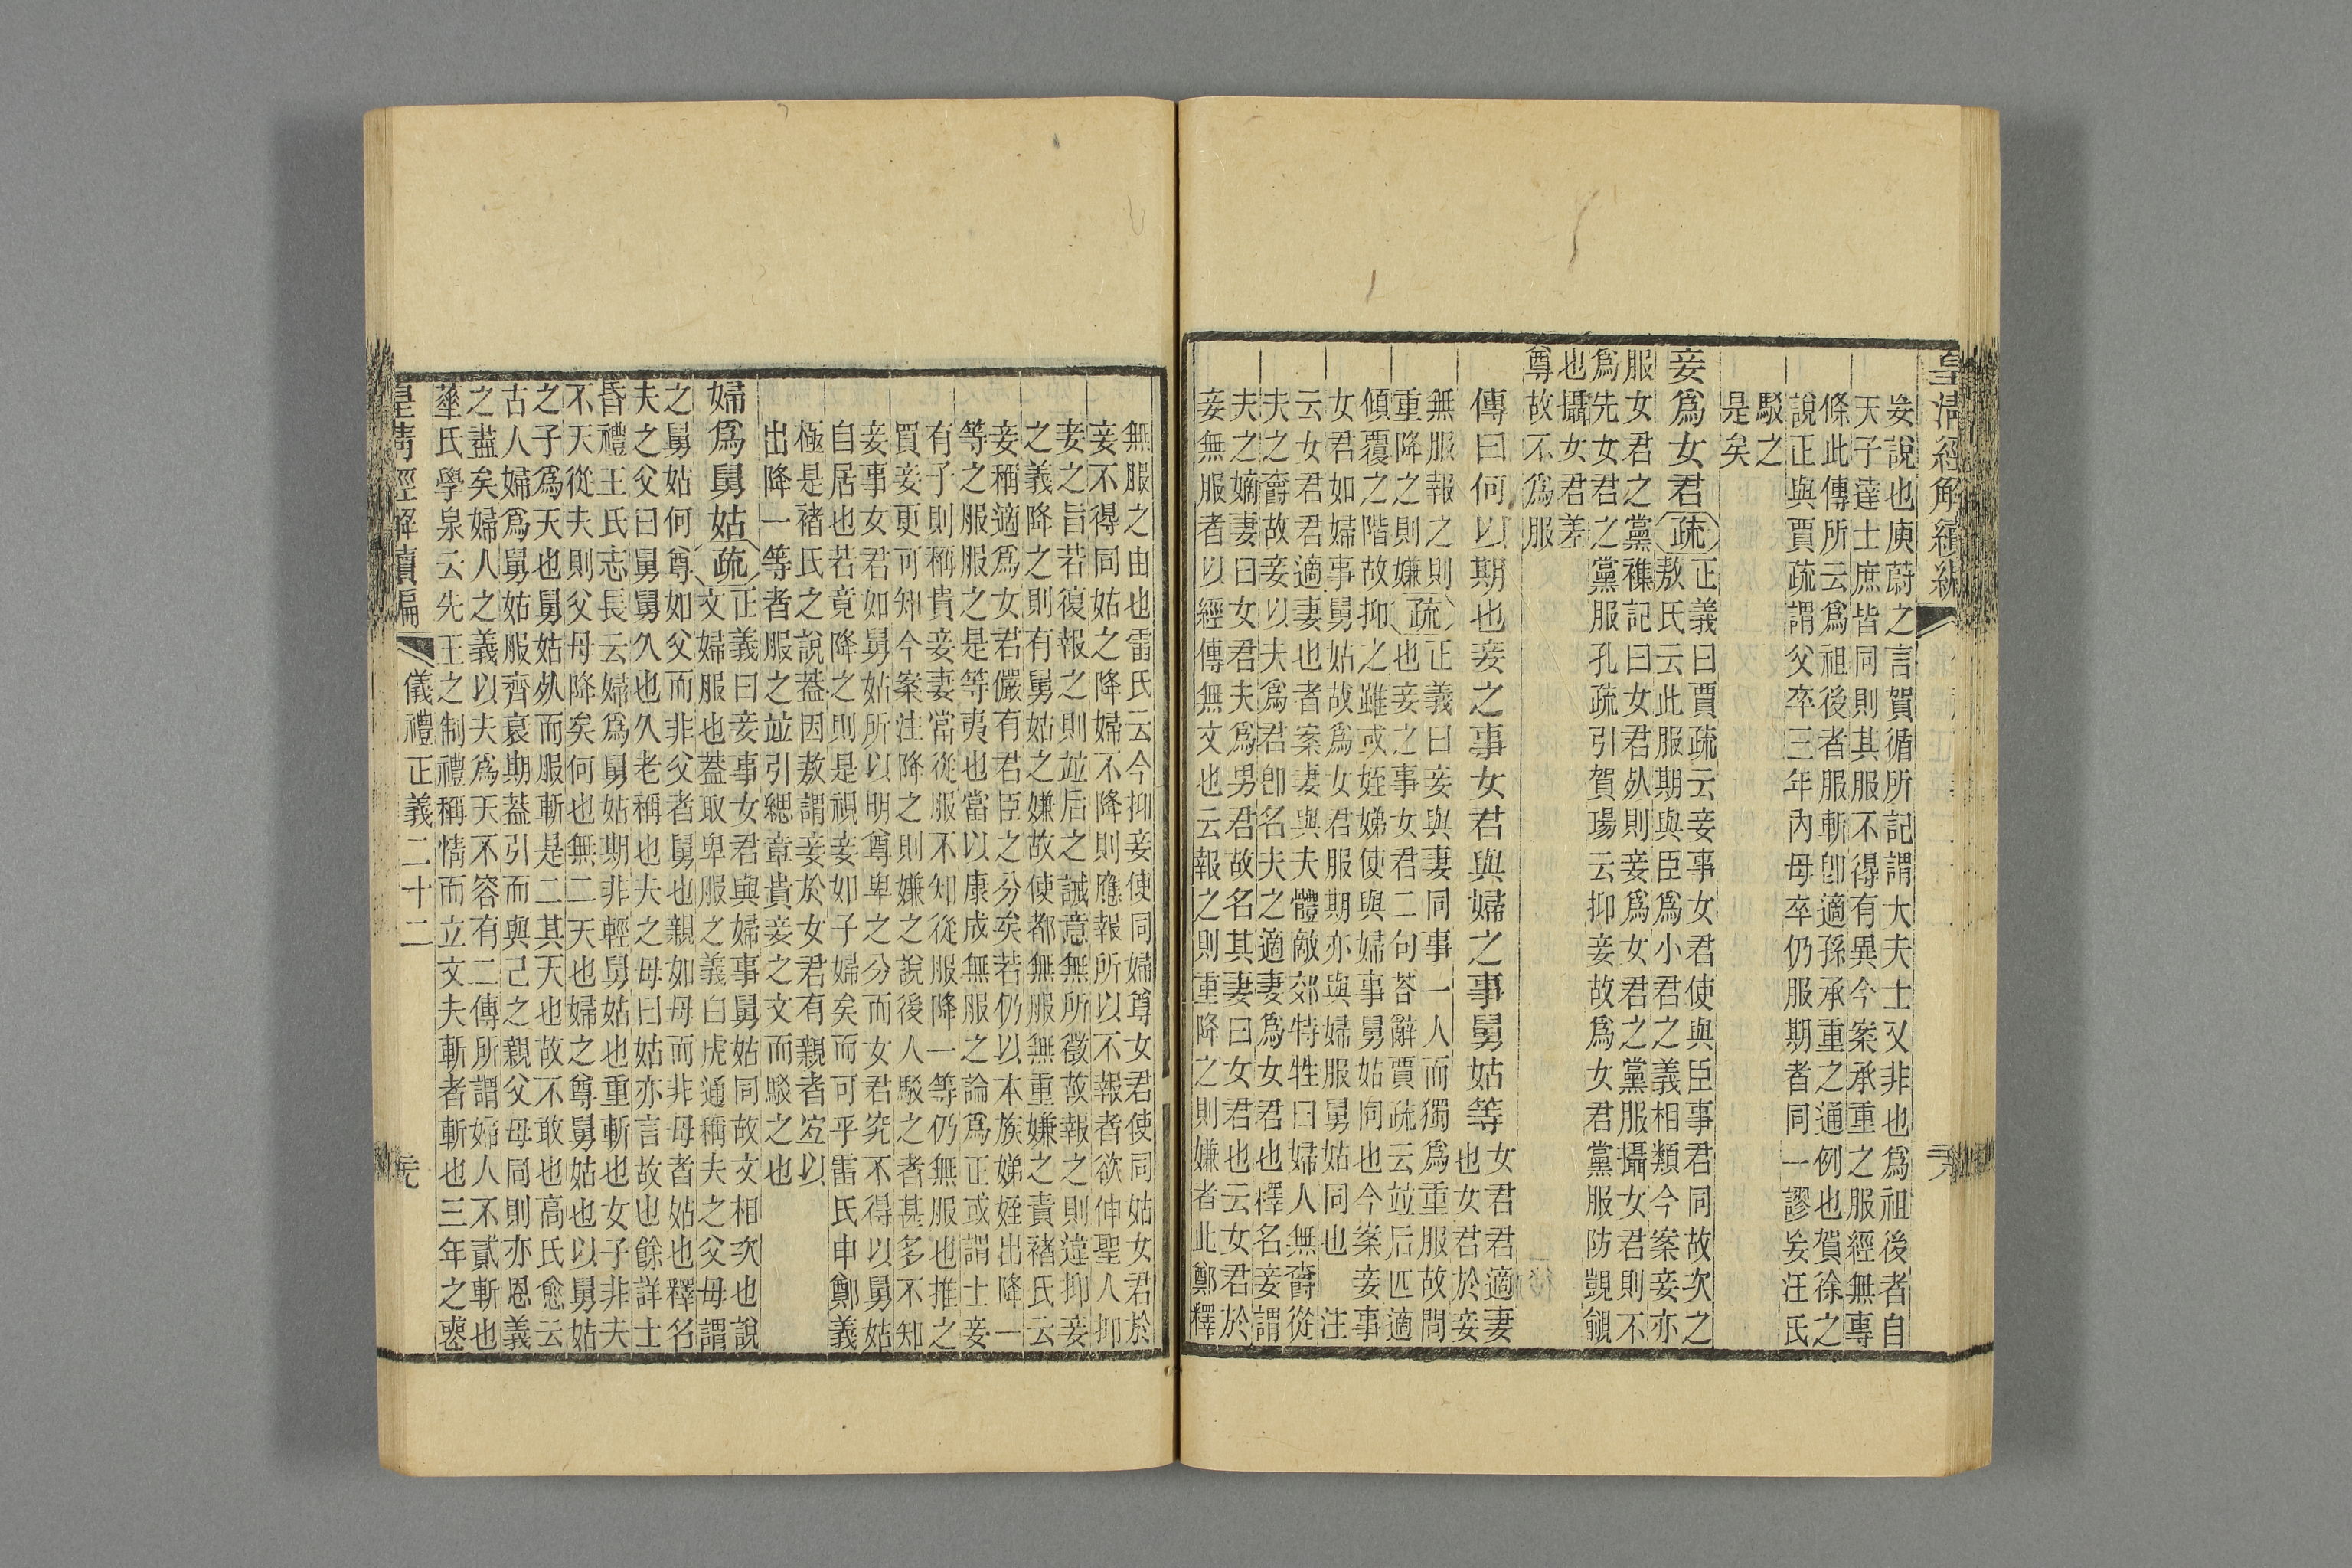 皇清經解續編
妄說也庾蔚之言賀循所記謂大夫士又非也爲祖後者自
天子達士庶皆同則其服不得有異今案承重之服經無專
條此傳所云爲祖後者服斬卽適孫承重之通例也賀徐之
說正與賈疏謂父卒三年內母卒仍服期者同一謬妄汪氏
駁之
是矣
妾爲女君疏正義曰賈疏云妾事女君使與臣事君同故次之
敖氏云此服期與臣爲小君之義相類今案妾亦
服女君之黨襍記曰女君㱾則妾爲女君之黨服攝女君則不
爲先女君之黨服孔疏引賀瑒云抑妾故爲女君黨服防覬覦
也攝女君差
尊故不爲服
傳曰何以期也妾之事女君與婦之事舅姑等女君君適妻
也女君於妾
無服報之則
重降之則嫌疏正義曰妾與妻同事一人而獨爲重服故問
也妾之事女君二句荅辭賈疏云竝后匹適
傾覆之階故抑之雖或姪娣使與婦事舅姑同也今案妾事
女君如婦事舅姑故爲女君服期亦與婦服舅姑同也 注
云女君君適妻也者案妻與夫體敵郊特牲曰婦人無爵從
夫之爵故妾以夫爲君卽名夫之適妻爲女君也釋名妾謂
夫之嫡妻曰女君夫爲男君故名其妻曰女君也云女君於
妾無服者以經傳無文也云報之則重降之則嫌者此鄭釋
無服之由也雷氏云今抑妾使同婦尊女君使同姑女君於
妾不得同姑之降婦不降則應報所以不報者欲伸聖人抑
妾之旨若復報之則竝后之誡意無所徵故報之則違抑妾
之義降之則有舅姑之嫌故使都無服無重嫌之責褚氏云
妾稱適爲女君儼有君臣之分矣若仍以本族娣姪出降一
等之服服之是等夷也當以康成無服之論爲正或謂士妾
有子則稱貴妾妻當從服不知從服降一等仍無服也推之
買妾更可知今案注降之則嫌之說後人駁之者甚多不知
妾事女君如舅姑所以明尊卑之分而女君究不得以舅姑
自居也若竟降之則是視妾如子婦矣而可乎雷氏申鄭義
極是褚氏之說葢因敖謂妾於女君有親者宐以
出降一等者服之竝引緦章貴妾之文而駁之也
婦爲舅姑疏正義曰妾事女君與婦事舅姑同故文相次也說
文婦服也葢取卑服之義白虎通稱夫之父母謂
之舅姑何尊如父而非父者舅也親如母而非母者姑也釋名
夫之父曰舅舅久也久老稱也夫之母曰姑亦言故也餘詳士
昏禮王氏志長云婦爲舅姑期非輕舅姑也重斬也女子非夫
不天從夫則父母降矣何也無二天也婦之尊舅姑也以舅姑
之子爲天也舅姑㱾而服斬是二其天也故不敢也高氏愈云
古人婦爲舅姑服齊衰期葢引而與己之親父母同則亦恩義
之盡矣婦人之義以夫爲天不容有二傳所謂婦人不貳斬也
華氏學泉云先王之制禮稱情而立文夫斬者斬也三年之惡
皇清經解續編
儀禮正義二十二